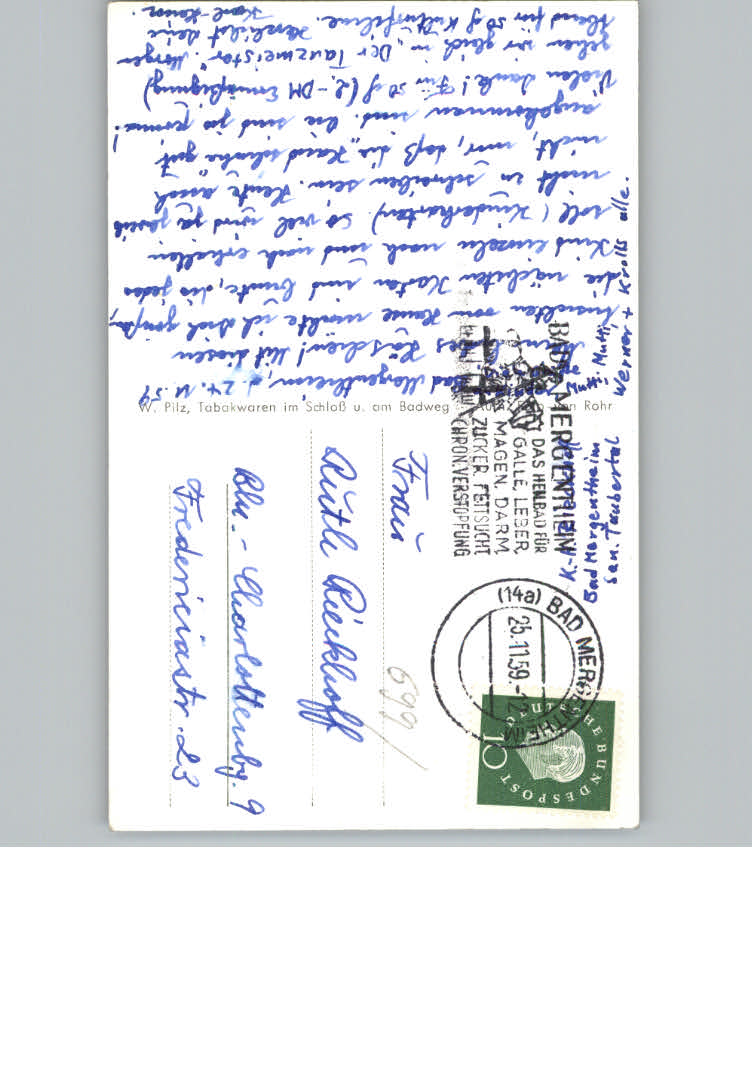 Bad Mergentheim, d. 24.11.59
Mein liebes Häschen! Mit diesen
Ansichten vom Hause möchte ich Dich grüßen,
die nächsten Karten sind bunte, die jedes
Kind einzeln noch und noch erhalten
soll (Kinderkarten) So viel wird ja jeweils
nicht zu schreiben sein. Heute auch
nicht, nur, daß die „Handschuhe" gut
angekommen sind. Sie sind ja prima!
Vielen Dank! Für 50 Pf (2,- DM Ermäßigung)
gehen wir gleich in „Der Tanzmeister". Morgen
Abend für 50 Pf Kulturfilme. Herzlichst Deine
Karl-Heinz.
Mutti, Mutti,
Werner + Krolls alle.
W. Pilz, Tabakwaren im Schloß u. am Badweg
Rohr
K.-H.
Bad Mergentheim
San. Taubertal
BAD MERGENTHEIM
DAS HEILBAD FÜR
GALLE, LEBER,
MAGEN, DARM,
ZUCKER, FETTSUCHT,
CHRON. VERSTOPFUNG
(14a) BAD MERGENTHEIM
25.11.59.-12
DEUTSCHE BUNDESPOST
10
699
Frau
Ruth Rieckhoff
Bln.- Charlottenbg. 9
Fredericiastr. 23